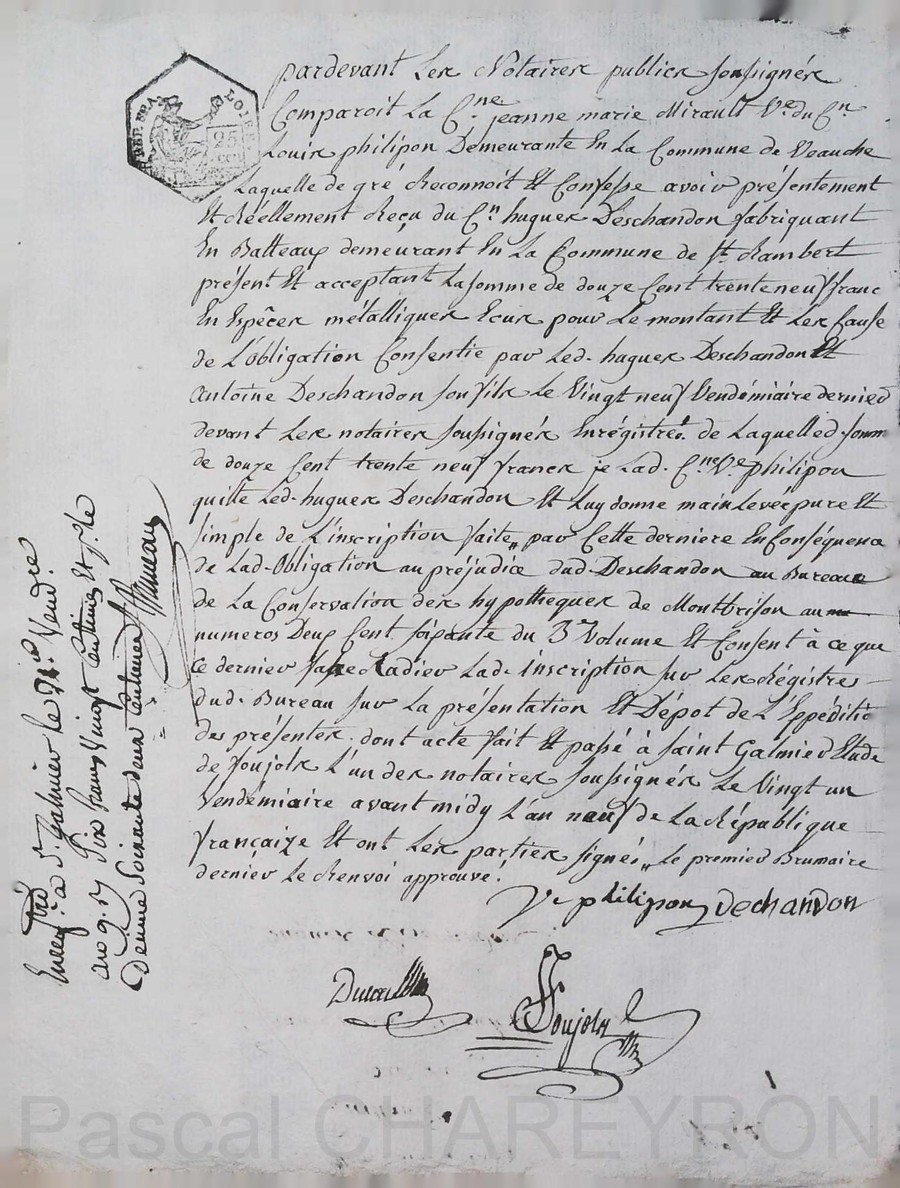 REP. FRA. LOIRE
25
cen
pardevant Les Notaires publics soussignés
Comparoit La C.ne jeanne marie Mirault V.e du C.n
Louis philipon Demeurante En La Commune de Veauche
Laquelle de gré Reconnoit Et Confesse avoir présentement
Et Réellement Reçu du C.n hugues Deschandon fabriquant
En Batteaux demeurant En La Commune de st. Rambert
présent Et acceptant La somme de douze Cent trente neuf franc
En Espêces métalliques Ecus pour Le montant Et Les Cause
de L'obligation Consentie par Led. hugues Deschandon Et
Antoine Deschandon son fils Le Vingt neuf Vendémiaire dernier
devant Les notaires soussignés Enrégistré. de Laquelle d. somm
de douze Cent trente neuf francs je Lad. C.ne V.e philipon
quitte Led. hugues Deschandon Et Luy donne mainLevée pure Et
simple de L'inscription faite „ par Cette derniere En Conséquence
de Lad. Obligation au préjudice dud. Deschandon au Bureau
de La Conservation des hypotheques de Montbrison au
numeros Deux Cent soixante du 3.e Volume Et Consent à ce que
Ce dernier fasse Radier Lad. inscription sur Les Régistres
dud. Bureau sur La présentation Et Dépot de L'Expeditio
des présentes. dont acte fait Et passé à Saint Galmier Etude
de Soujols L'un des notaires soussignés Le Vingt un
Vendémiaire avant midy L'an neuf de La République
françaize Et ont Les parties signés „ Le premier Brumaire
dernier Le Renvoi approuvé.
V.e philipon Dechandon
Soujols
Enregtré à St. Galmier le 21. Vendre.
an 9. Six francs Vingt Centimes Et p. le
Deime Soixante deux Centimes
Pascal CHAREYRON